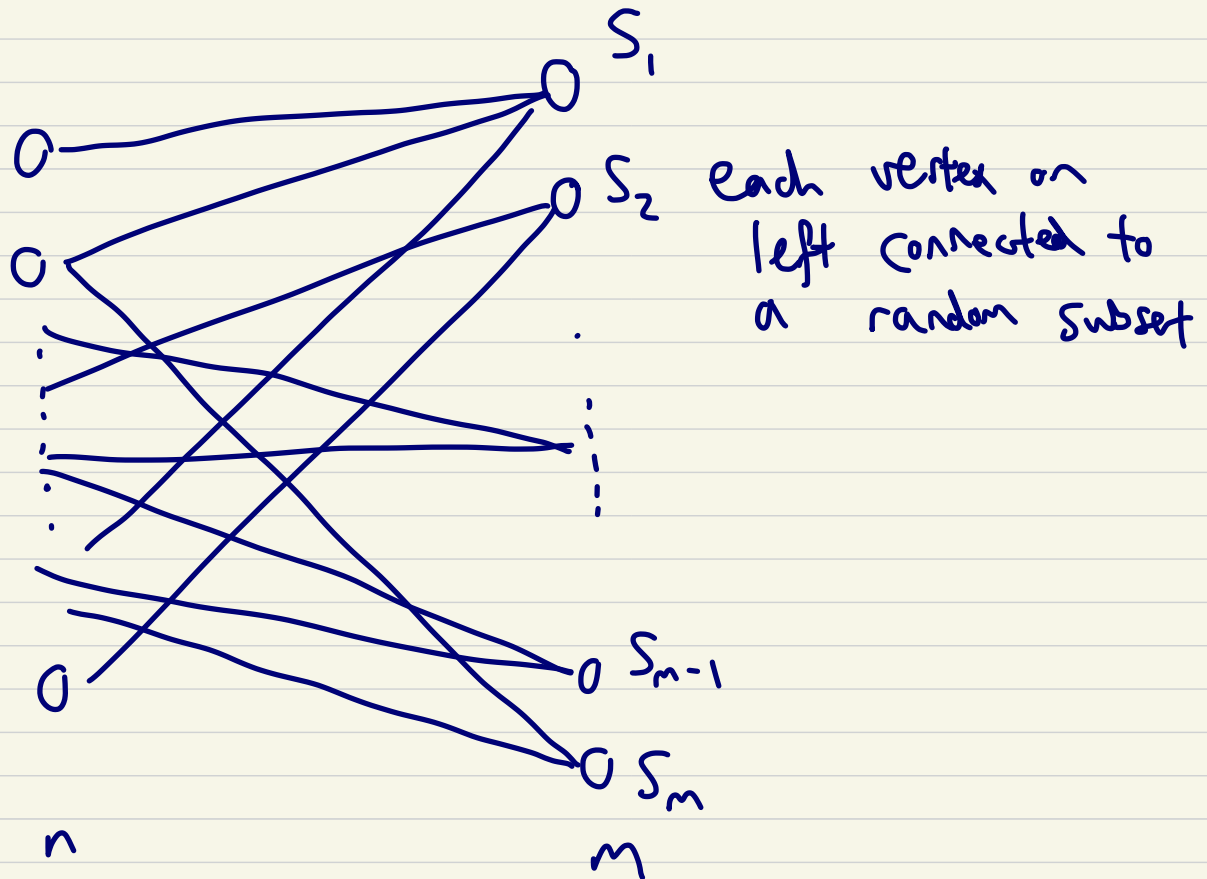 S₁
S₂ each vertex on
left connected to
a random subset
Sₘ₋₁
Sₘ
n m